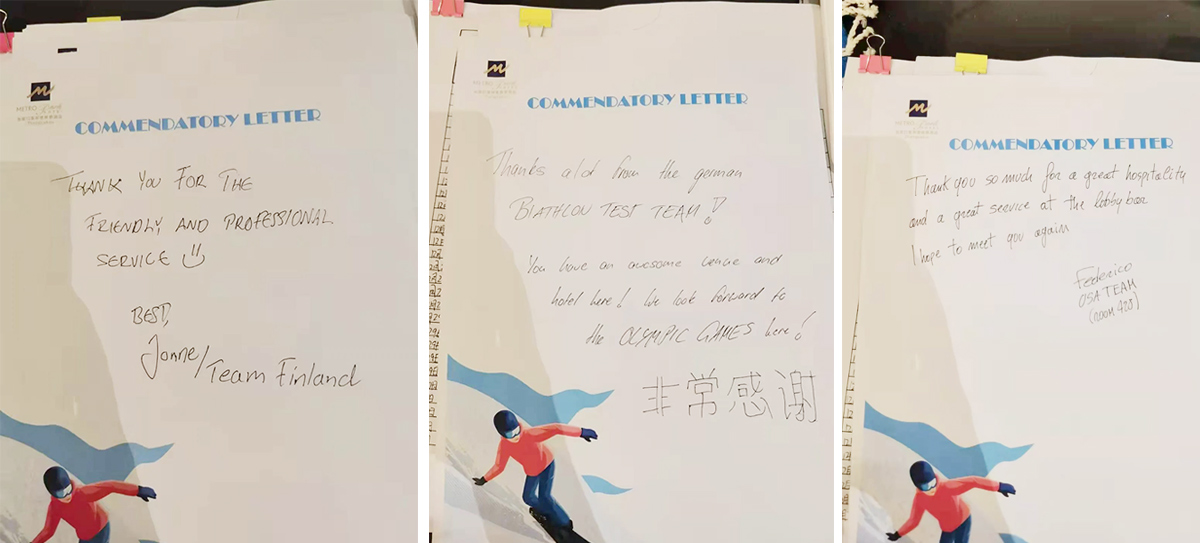 METRO
COMMENDATORY LETTER
THANK YOU FOR THE
FRIENDLY AND PROFESSIONAL
SERVICE
BEST,
Jonne/Team Finland
COMMENDATORY LETTER
Thanks alot from the german
BIATHLON TEST TEAM!
You have an awesome venue and
hotel here! We look forward to
the OLYMPIC GAMES here!
非常感谢
COMMENDATORY LETTER
Thank you so much for a great hospitality
and a great service at the lobby bar
I hope to meet you again
Federico
USA TEAM
(room 428)